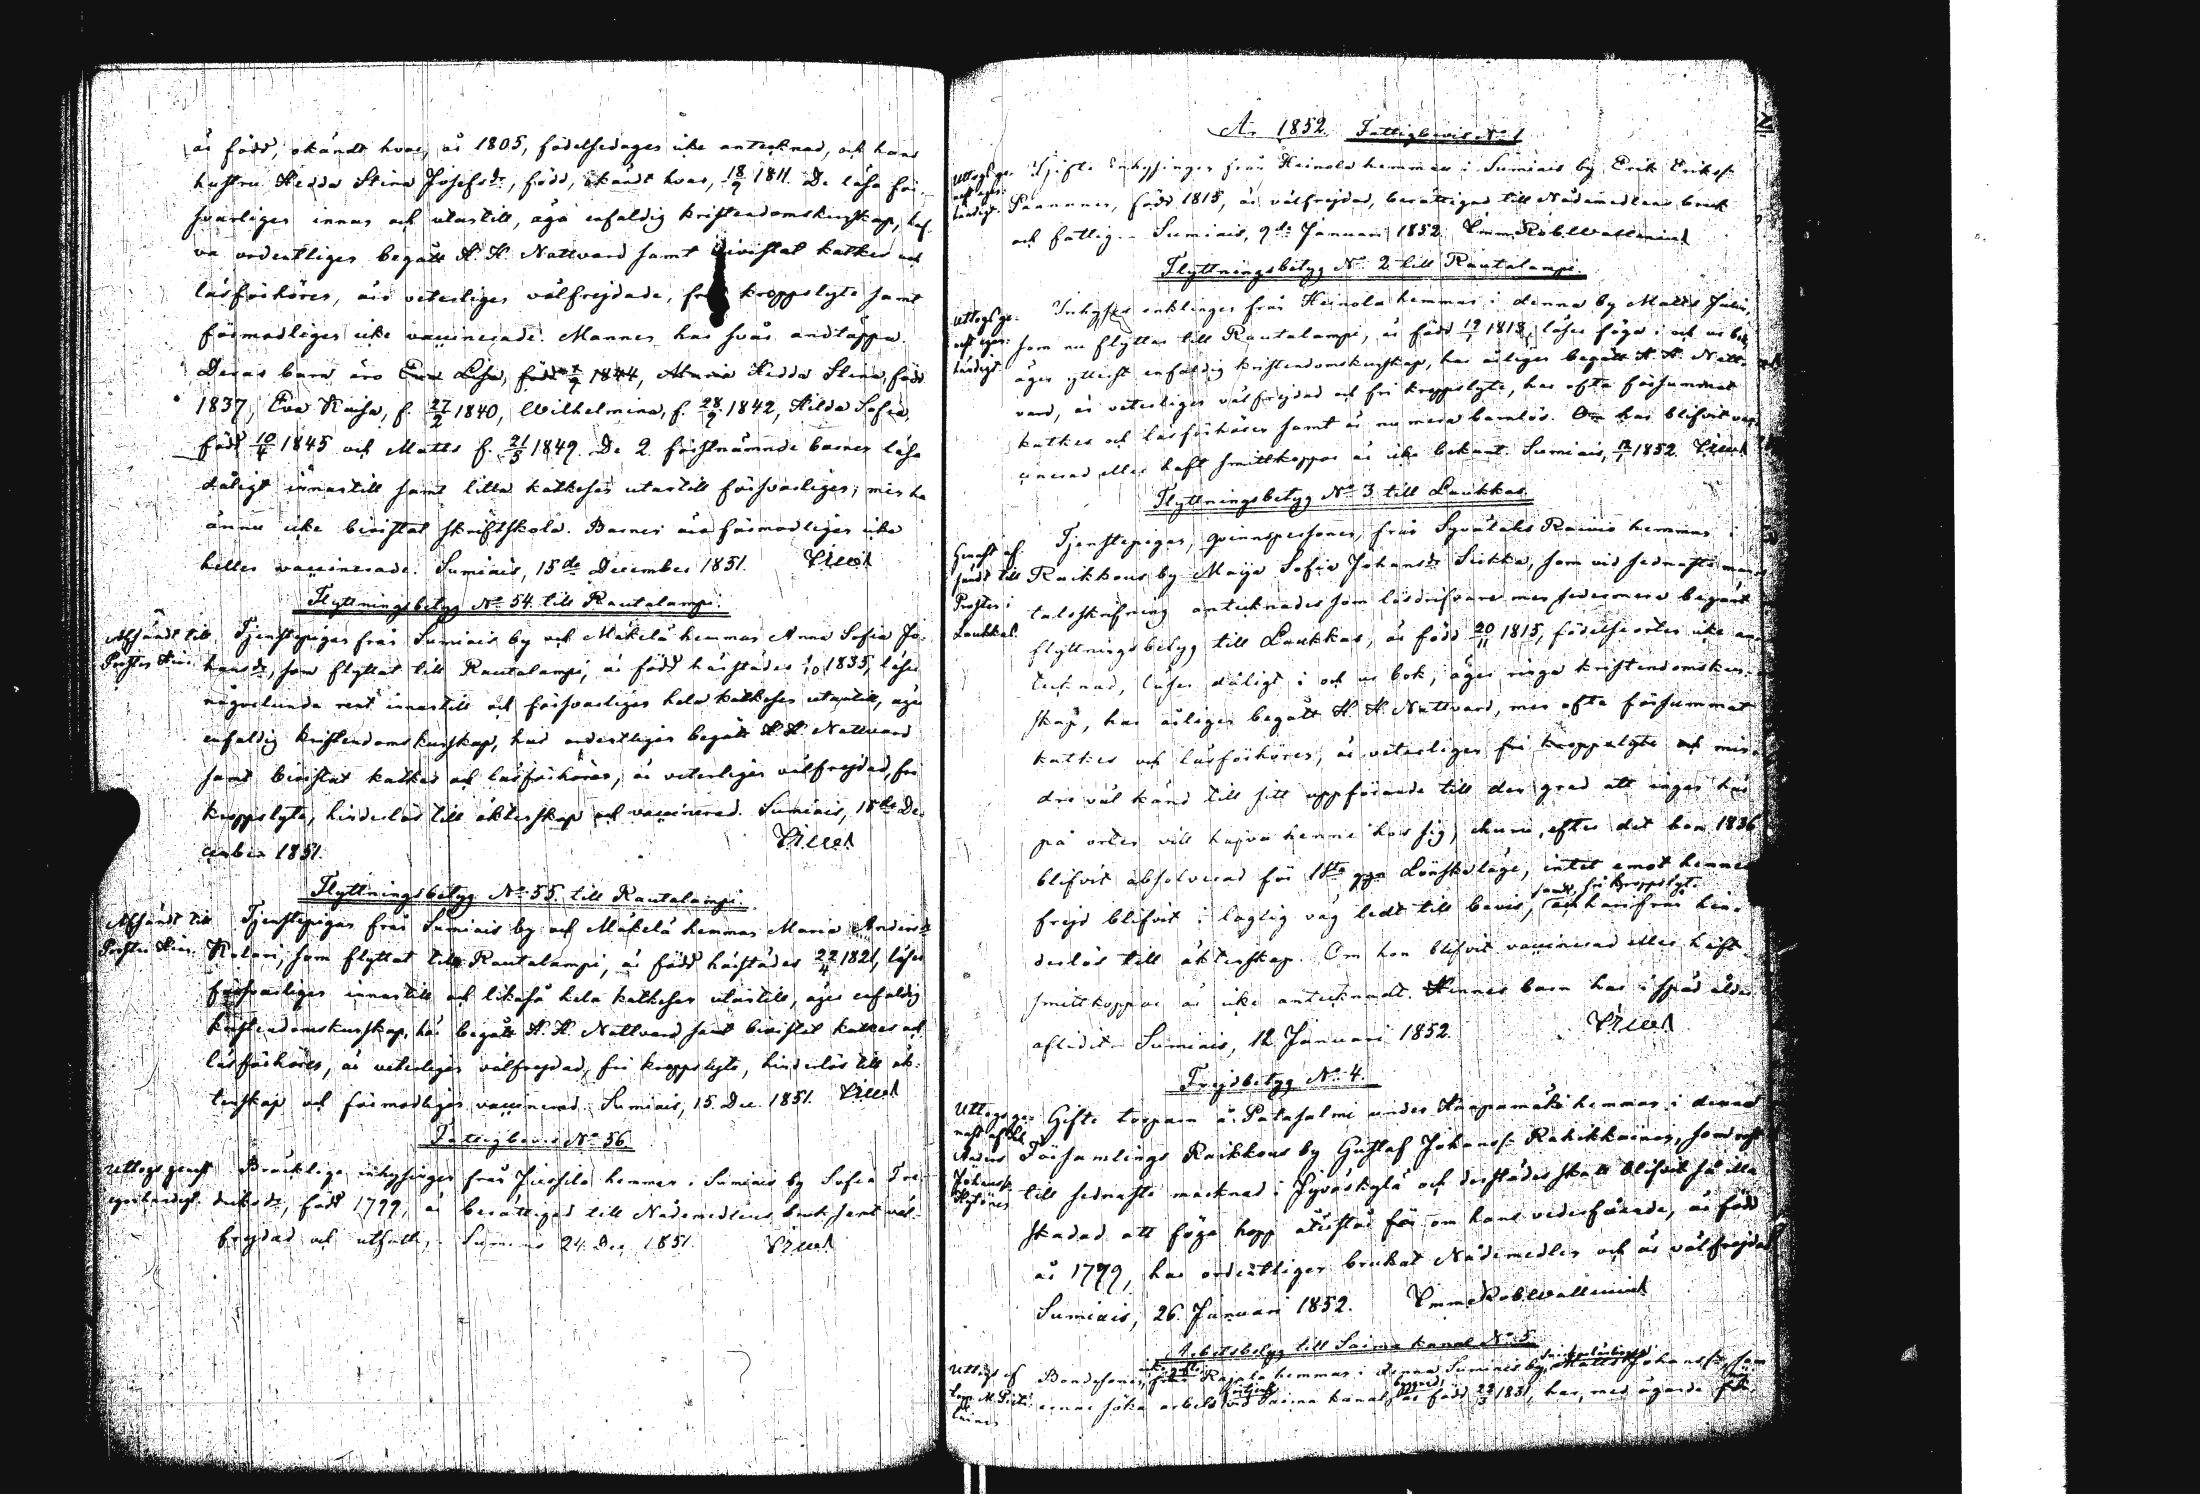 är född, okändt hvar, år 1805, födelsedagen icke antecknad, och hans
hustru Hedda Stina Josefsdr, född, okändt hvar, 18/9 1811. De läsa för-
svarligen innan och utantill, äga enfaldig kristendomskunskap, haf-
va ordentligen begått H. H. Nattvard samt bivistat katkes och
läsförhören, äro veterligen välfrejdade, fria kroppslyte samt
förmodligen icke vaccinerade. Mannen har svår andtäppa.
Deras barn äro Lisa, född 1844, Hedda Stina, född
1837, Eva Kaisa, f. 27/2 1840, Wilhelmina, f. 28/9 1842, Hilda Sofia,
född 10/4 1845 och Matts f. 21/5 1849. De 2 förstnämnde barnen läsa
dåligt innantill samt lilla katkesen utantill försvarligen, men ha
ännu icke bivistat skriftskola. Barnen äro förmodligen icke
heller vaccinerade. Sumiais, 15de December 1851.
Flyttningsbetyg No 54 till Rautalampi.
Afsändt till
Tjenstepigan från Sumiais by och Mäkelä hemman Anna Sofia Jo-
hansdr, som flyttat till Rautalampi, är född härstädes 1835, läser
någorlunda rent innantill och försvarligen hela katkesen utantill, äger
enfaldig kristendomskunskap, har ordentligen begått H. H. Nattvard
samt bivistat katkes och läsförhören, är veterligen välfrejdad, fri
kroppslyte, hinderlös till äktenskap och vaccinerad. Sumiais, 15de De-
cember 1851.
Flyttningsbetyg No 55 till Rautalampi.
Afsändt till
Tjenstepigan från Sumiais by och Mäkelä hemman Maria Andersdr
Kolari, som flyttat till Rautalampi, är född härstädes 22/4 1821, läser
försvarligen innantill och likaså hela katkesen utantill, äger enfaldig
kristendomskunskap, har begått H. H. Nattvard samt bivistat katkes och
läsförhören, är veterligen välfrejdad, fri kroppslyte, hinderlös till äk-
tenskap och förmodligen vaccinerad. Sumiais, 15 Dec. 1851.
Fattigbevis No 56.
Uttogs genast
egenhändigt.
Bräckliga inhysingen från hemman i Sumiais by Sofia Fre-
driksdr, född 1799, är berättigad till Nådemedlens bruk samt väl-
frejdad och utfattig. Sumiais 24 Dec. 1851.
År 1852. Fattigbevis No 1
Uttogs ge-
nast egen-
händigt.
Gifte Inhysingen från Heinola hemman i Sumiais by Erik Eriksn
Paananen, född 1815, är välfrejdad, berättigad till Nådemedlens bruk
och fattig. Sumiais, 9de Januari 1852. Emm. Rob. Wallenius
Flyttningsbetyg No 2 till Rautalampi.
Uttogs ge-
nast egen-
händigt
Inhyses enklingen från Heinola hemman i denna by Matts
som nu flyttar till Rautalampi, är född 1818, läser föga i och ur bok,
äger ytterst enfaldig kristendomskunskap, har årligen begått H. H. Natt-
vard, är veterligen välfrejdad och fri kroppslyte, har ofta försummat
katkes och läsförhören samt är nu mera barnlös. Om han blifvit vac-
cinerad eller haft smittkoppor är icke bekant. Sumiais, 1852.
Flyttningsbetyg No 3 till Laukkas.
Genast af-
sändt till
Prosten i
Laukkas.
Tjenstepigan, qvinnspersonen, från hemman i
Raikkous by Maija Sofia Johansdr Sirkka, som vid sednaste man-
talsskrifning antecknades som lösdrifvare men sedermera begärt
flyttningsbetyg till Laukkas, är född 20/11 1815, födelseorten icke an-
tecknad, läser dåligt i och ur bok, äger ringa kristendomskun-
skap, har årligen begått H. H. Nattvard, men ofta försummat
katkes och läsförhören, är veterligen fri kroppslyte och min-
dre väl känd till sitt uppförande till den grad att ingen här
på orten vill hafva henne hos sig, ehuru, efter det hon 1836
blifvit absolverad för 1sta ggn Lönskaläge, intet emot hennes
frejd blifvit i laglig väg ledt till bevis, samt fri kroppslyte hin-
derlös till äktenskap. Om hon blifvit vaccinerad eller haft
smittkoppor är icke antecknadt. Hennes barn har i späd ålder
aflidit. Sumiais, 12 Januari 1852.
Frejdbetyg No 4.
Uttogs ge-
nast af
Anders
Johansn
Gifte torparen å Patasalmi under hemman i denna
Församlings Raikkous by Gustaf Johansn som rest
till sednaste marknad i Jyväskylä och derstädes skall blifvit så illa
skadad att föga hopp återstår för om hans vederfående, är född
år 1799, har ordentligen brukat Nådemedlen och är välfrejdad
Sumiais, 26 Januari 1852. Emm. Rob. Wallenius
Arbetsbetyg till Saima kanal No 5.
Uttogs af
Bondesonen, från hemman i denna Sumiais by, Matts Johansn, som
ärnar söka arbete vid Saima kanal, är född 22/3 1831, har, med ägande